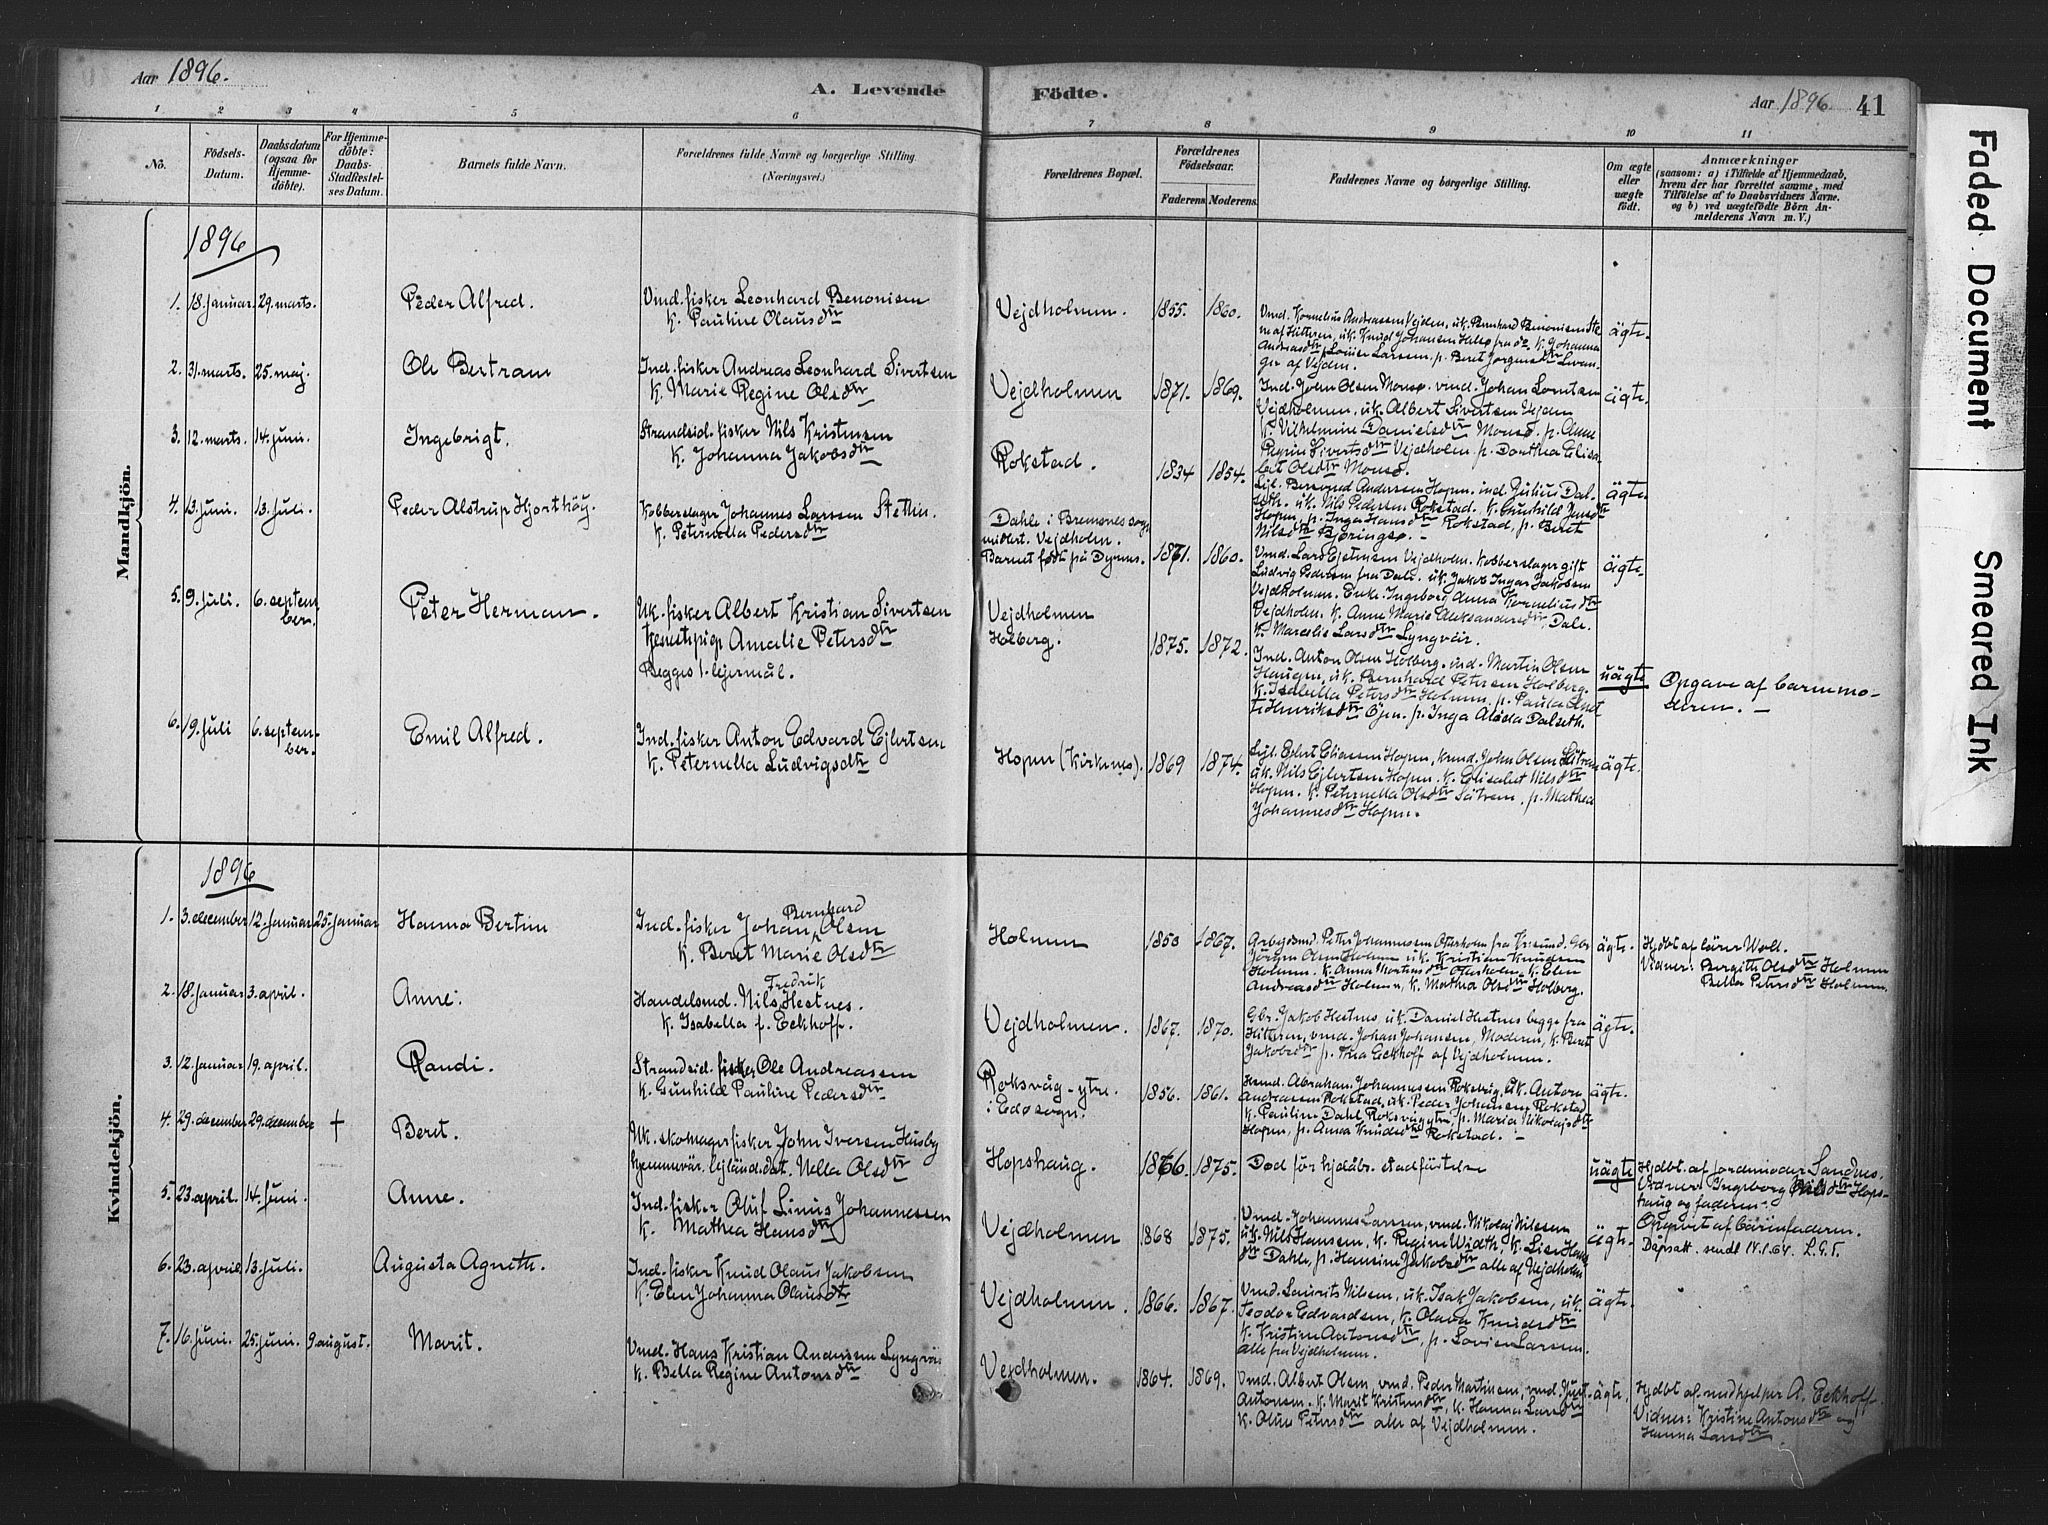 Aar 1896.
A. Levende Födte.
Aar 1896 41
1 2 3 4 5 6 7 8 9 10 11
No.
Födsels-
Datum.
Daabsdatum
(ogsaa for
Hjemme-
döbte).
For Hjemme-
döbte:
Daabs-
Stadfæstel-
ses Datum.
Barnets fulde Navn.
Forældrenes fulde Navne og borgerlige Stilling.
(Næringsvei.)
Forældrenes Bopæl.
Forældrenes
Födselsaar.
Faderens Moderens
Faddernes Navne og borgerlige Stilling.
Om ægte
eller
uægte
födt.
Anmærkninger
(saasom: a) i Tilfælde af Hjemmedaab,
hvem der har forrettet samme, med
Tilföielse af to Daabsvidners Navne.
og b) ved uægtefödte Börn An-
melderens Navn m. V.)
Mandkjön.
1896
1. 18. januar 29. marts. Peder Alfred.
Vmd. fisker Leonhard Benonisen
K. Pauline Olausdtr
Vejdholmen. 1855. 1860.
Vmd. Kornelius Andreassen Vejden, uk. Bernhard Benonisen Ste
m af Hitteren, uk. Knud Johansen fra do. K. Johanna
Andreasdtr, Louise Larsen, p. Beret Jørgensdtr Levan-
ger af Vejden.
ägte.
2. 31. marts. 25. maj. Ole Bertram
Ind. fisker Andreas Leonhard Sivertsen
K. Marie Regine Olsdtr
Vejdholmen 1871. 1869.
Ind. John Olsen Monsø. vmd. Johan Lorntsen
Vejdholmen, uk. Albert Sivertsen Vejden
K. Vilhelmine Danielsdtr Monsø. p. Anne
Regine Sivertsdtr Vejdholm p. Dorthea Elisa-
bet Olsdtr Monsø.
ägte.
3. 12. marts. 14. juni. Ingebrigt.
Strandsid. fisker Nils Kristensen
K. Johanna Jakobsdtr
Rokstad. 1834 1854.
Lejl. Andersen Hopen. ind. Julius Dal-
seth. uk. Nils Pedersen Rokstad. K. Gunhild Jensdtr
Hopen, p. Inga Hansdtr Rokstad, p. Beret
Nilsdtr Bjøringsø.
ägte
4. 13. juni. 13. juli. Peder Alstrup Hjorthöy.
Kobberslager Johannes Larssen Stethin.
K. Peternella Pedersdtr
Dahle i Bremsnes sogn
midlert. Vejdholm.
Barnet født på Dyrnes. 1871. 1860.
Vmd. Lars Ejertsen Vejdholm. Kobberslager gift
Ludvig Pedersen fra Dale. uk. Jakob Ingar Jakobsen
Vejdholmen. Enke Ingeborg Anna Korneliusdtr
Vejdholm. K. Anne Marie Aleksandersdtr, Dale.
K. Marcelie Larsdtr Lyngvär.
ägte
5. 9. juli. 6. septem
ber. Peter Herman.
Uk. fisker Albert Kristian Sivertsen
tjenestpige Amalie Petersdtr
Begges 1. lejermål.
Vejdholmen
Holberg. 1875. 1872.
Ind. Anton Olsen Holberg. ind. Martin Olsen
Haugen, uk. Bernhard Petersen Holberg.
K. Isabella Petersdtr Holmen. p. Paula Anet
te Henriksdtr Öjen. p. Inga Aløda Dalseth.
uägte
Opgave af barnemo-
deren. —
6. 19. juli 6. septem-
ber. Emil Alfred.
Ind. fisker Anton Edvard Ejlertsen
K. Peternella Ludvigsdtr
Hopen (Kirkenes). 1869 1874.
Lejl. Edert Eliassen Hopen, kmd. John Olsen Sätran
uk. Nils Ejlertsen Hopen. K. Elisabet Nilsdtr
Hopen. K. Peternella Olsdtr Sätran. p. Mathea
Johannesdtr Hopen.
ägte.
Kvindekjön.
1896
1. 3. december 12. januar 25. januar Hanna Bertine
Ind. fisker Johan Bernhard Olsen
K. Beret Marie Olsdtr
Holmen 1853 1867.
Arbejdsmd. Petter Johannessen Oterholm fra Kr.sund. Gbr.
Jörgen Olsen Holmen uk. Kristian Knudsen
Holmen. K. Anna Martinsdtr Oterholm. K. Elen
Andreasdtr Holmen, K. Mathea Olsdtr Holberg.
ägte.
Hjdbt af lärer Woll.
Vidner: Bergitte Olsdtr Holmen
Bella Petersdtr Holmen.
2. 18. januar 3. april. Anne.
Handelsmd. Nils Fredrik Hestnes.
K. Isabella f. Eckhoff.
Vejdholmen. 1867. 1870.
Gbr. Jakob Hestnes uk. Daniel Hestnes begge fra
Hitteren, vmd. Johan Johansen, Moderen, K. Beret
Jakobsdtr p. Thea Eckhoff af Vejdholmen.
ägte.
3. 12. januar 19. april. Randi.
Strandsid. fisker Ole Andreassen
K. Gunhild Pauline Pedersdtr
Roksvåg-ytre.
i Edøsogn. 1856. 1861.
Husmd. Abraham Johannessen Roksvåg, uk. Antora
Andreassen Rokstad, uk. Peder Johansen Rokstad
K. Pauline Dahl Roksvåg ytre, p. Maria Nikolajsdtr
Hopen, p. Anna Knudsdtr Rokstad. —
ägte.
4. 29. december 29. december † Beret.
Uk. skomager fisker John Iversen Husby
hjemmevär. lejländ.dat. Nella Olsdtr
Hopshaug. 1866. 1875. Død før hjdåbs stadfästelse
uägte
Hjdbt. af jordemoder Sandnes.
Vidner Ingeborg Olsdtr Hops-
haug og faderen.
5. 23. april. 14. juni. Anne.
Ind. fisker Oluf Linus Johannessen
K. Mathea Hansdtr
Vejdholmen 1868 1875.
Vmd. Johannes Larssen, vmd. Nikolaj Nilssen
uk. Nils Hanssen, K. Regine Width, K. Lise Hans
dtr Dahle, p. Hansine Jakobsdtr alle af Vejdholm
ägte.
Opgivet af barnefaderen.
Dåpsatt. sendt 14.1.64. L.G.T.
6. 23. april. 13. juli. Augusta Agneth.
Ind. fisker Knud Olaus Jakobsen
K. Elen Johanna Olausdtr
Vejdholmen. 1866. 1867.
Vmd. Laurits Nilsen, uk. Isak Jakobsen, uk.
Teodor Edvardsen, K. Olava Knudsdtr
K. Kristine Antonsdtr, p. Lovise Larsen.
alle fra Vejdholmen.
ägte.
7. 16. juni. 25. juni. 9. august. Marit.
Vmd. Hans Kristian Andersen Lyngvär
K. Bella Regine Antonsdtr
Vejdholmen. 1864. 1869.
Vmd. Albert Olsen, vmd. Peder Martinsen, vmd. Just
Antonsen. K. Marit Kristensdtr, K. Hanna Larsdtr
K. Oline Petersdtr alle af Vejdholmen.
ägte.
Hjdbt af nødhjelper A. Eckhoff.
Vidner: Kristine Antonsdtr og
Hanna Larsdtr.
Faded Document
Smeared Ink